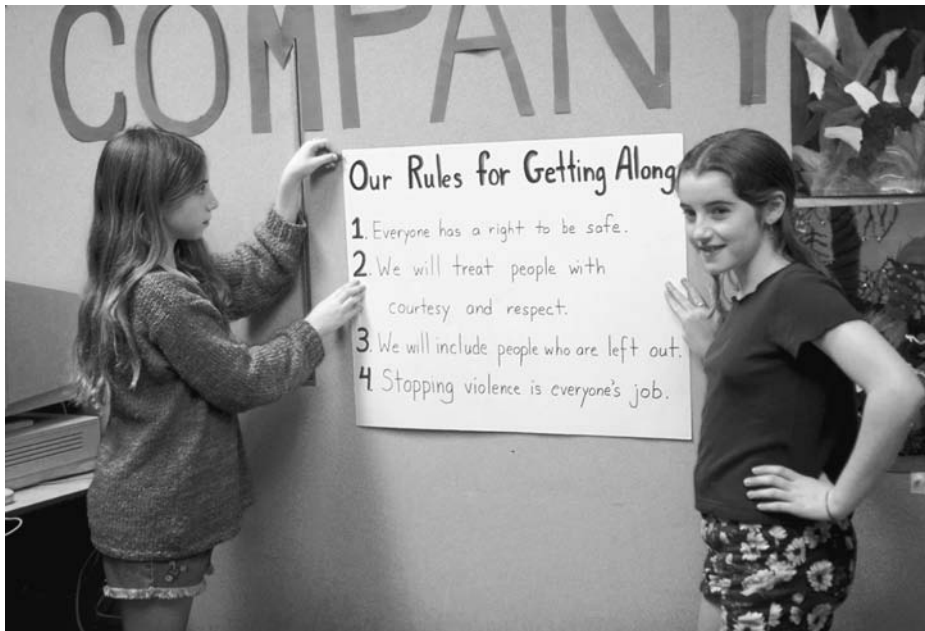 COMPANY
Our Rules for Getting Along
1. Everyone has a right to be safe.
2. We will treat people with
courtesy and respect.
3. We will include people who are left out.
4. Stopping violence is everyone's job.